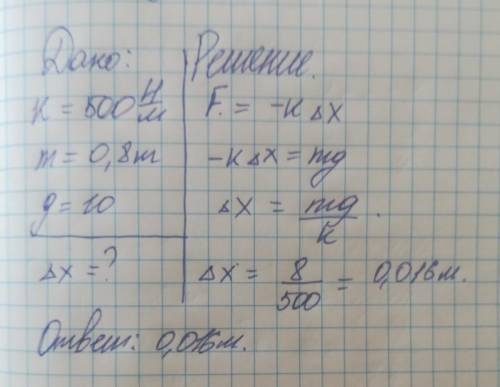 Дано:
k = 500 Н/м
m = 0,8 кг
g = 10
Δx = ?
Решение.
F = -kΔx
-kΔx = mg
Δx = mg/k.
Δx = 8/500 = 0,016 м.
Ответ: 0,016 м.